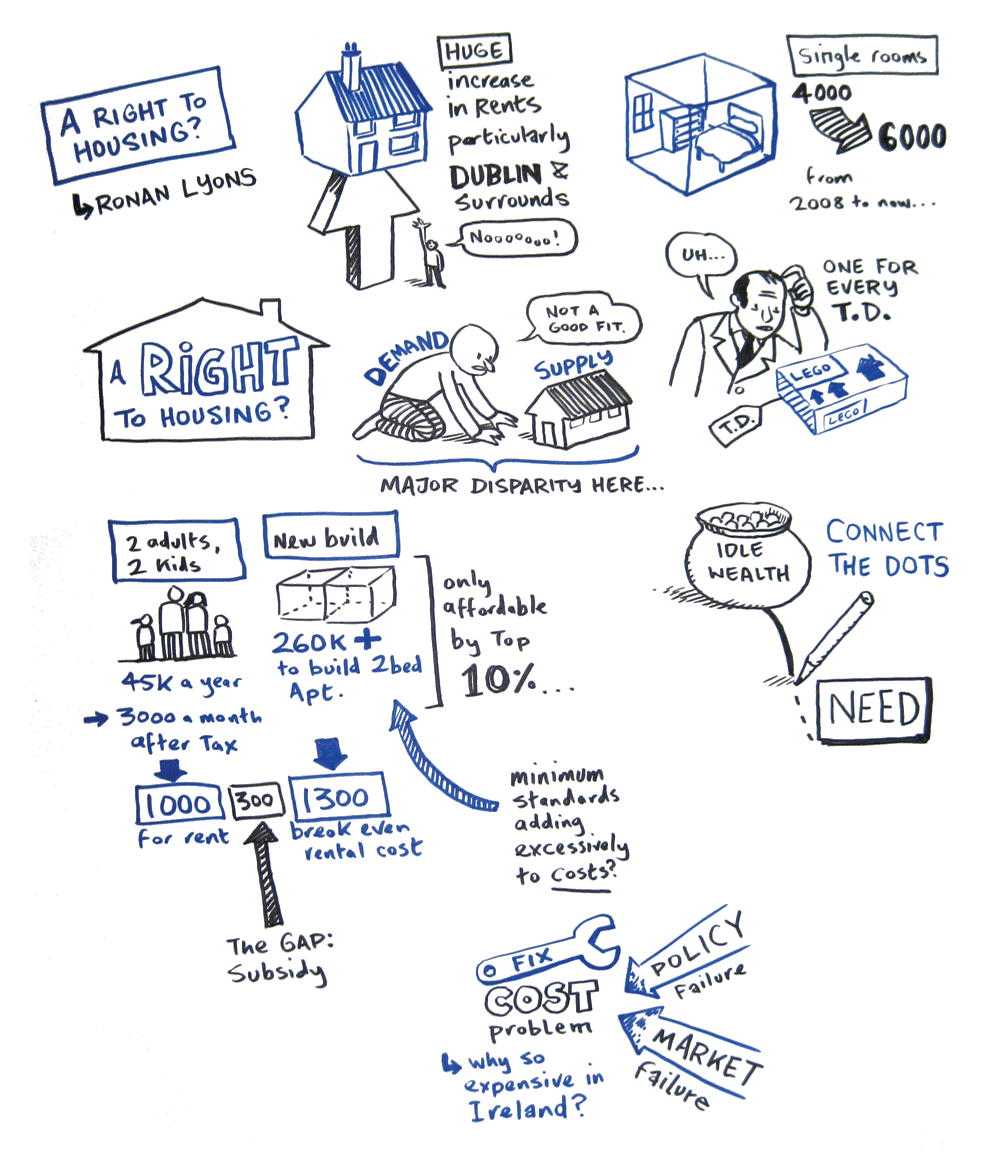 A RIGHT TO
HOUSING?
RONAN LYONS
HUGE
increase
in Rents
particularly
DUBLIN &
Surrounds
Nooooooo!
Single rooms
4000
6000
from
2008 to now...
UH...
ONE FOR
EVERY
T.D.
LEGO
LEGO
T.D.
A RIGHT
TO HOUSING?
DEMAND
NOT A
GOOD FIT.
SUPPLY
MAJOR DISPARITY HERE...
2 adults,
2 kids
45K a year
→ 3000 a month
after Tax
1000
for rent
300
New build
260K +
to build 2bed
Apt.
1300
break even
rental cost
only
affordable
by Top
10%...
The GAP:
Subsidy
minimum
standards
adding
excessively
to costs?
IDLE
WEALTH
CONNECT
THE DOTS
NEED
FIX
COST
problem
why so
expensive in
Ireland?
POLICY
Failure
MARKET
Failure